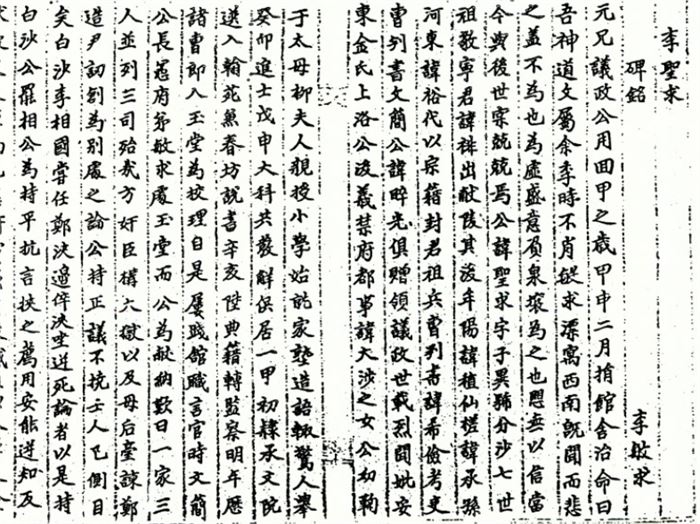 李聖求
碑銘 李敏求
元兄議政公用回甲之歲甲申二月捐館舍治命曰
吾神道文屬余季時不肖敏求漂寓西南旣聞而悲
之蓋不為也為虛盛意負泉壤為之也恩無以信當
今與後世寔兢兢焉公諱聖求字子異號分沙七世
祖敬寧君諱裶出獻陵其後牟陽諱稙仙槎諱承孫
河東諱裕代以宗籍封君祖兵曹判書諱希儉考吏
曹判書文簡公諱睟光俱贈領議政世載烈聞妣安
東金氏上洛公後義禁府都事諱大涉之女公幼鞠
于太母柳夫人親授小學始就家塾造語輒驚人舉
癸卯進士戊申大科共發解俱居一甲初隸承文院
選入翰苑兼春坊說書辛亥陞典籍轉監察明年歷
諸曹郎入玉堂為校理自是屢踐館職言官時文簡
公長憲府弟敏求處玉堂而公為獻納歎曰一家三
人並列三司殆哉方奸臣構大獄以及母后臺諫鄭
造尹訒創為別處之論公持正議不撓壬人已側目
矣白沙李相國嘗任鄭浹邊倅浹坐逆死論者以是持
白沙公罷相公為持平抗言挾之薦用安能逆知反